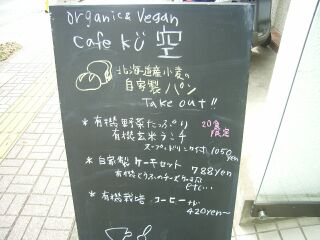 organic & vegan
cafe kū 空
北海道産小麦の
自家製パン
Take out!!
* 有機野菜たっぷり 20食
有機玄米ランチ 限定
スープ、ドリンク付 1050yen
* 自家製ケーキセット 788yen
有機とうふのチーズケーキ etc...
* 有機栽培コーヒー
420yen~